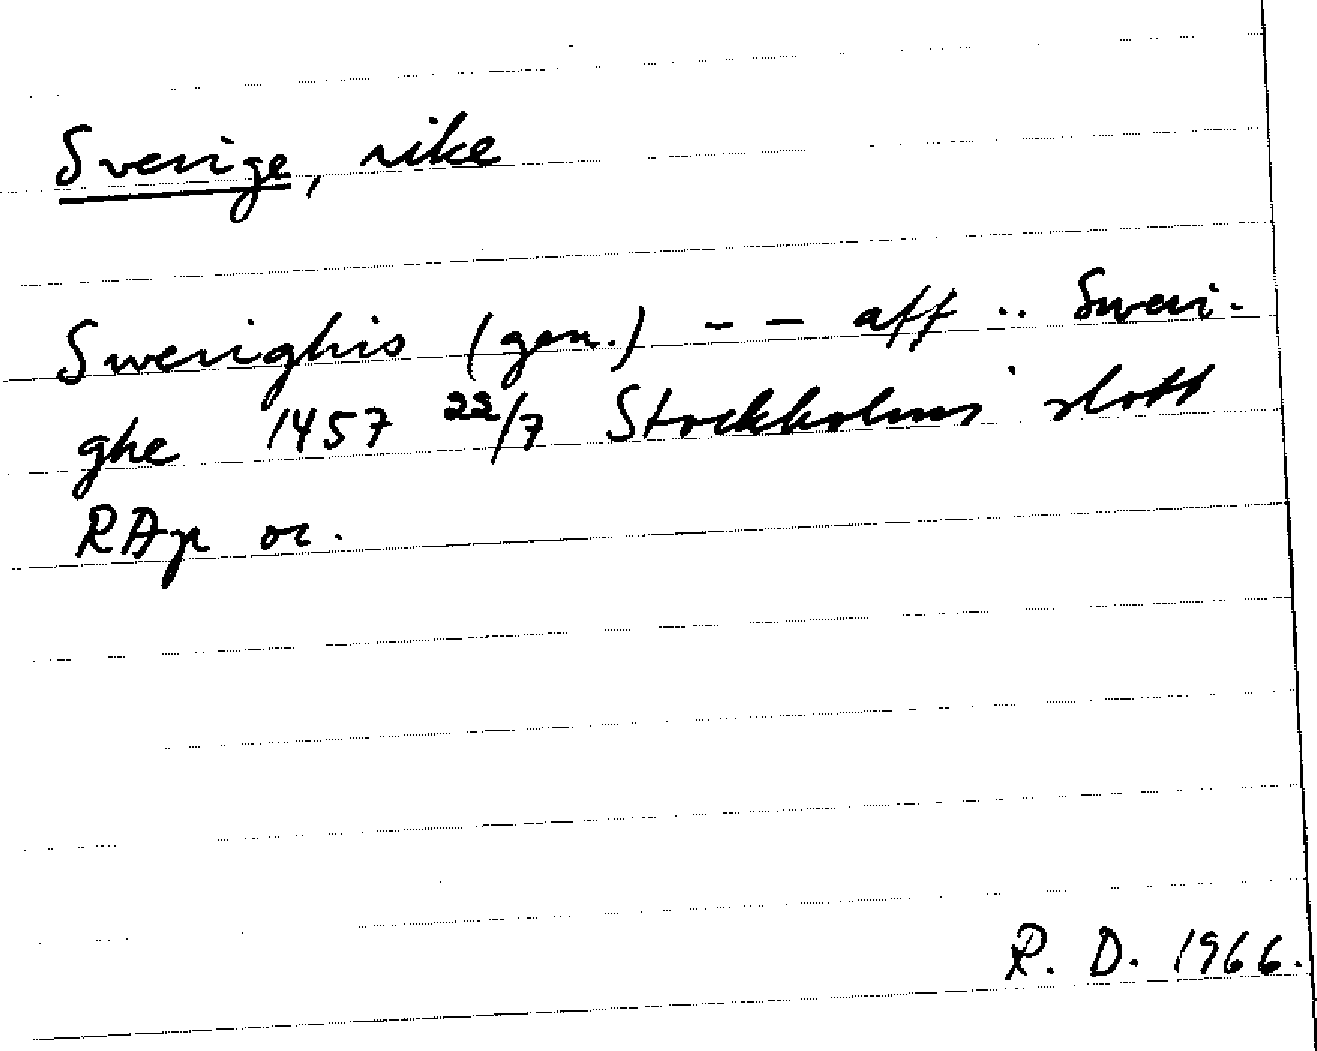 Sverige, rike
Swerighis (gen.) - - aff .. Sweri-
ghe 1457 22/7 Stockholms slott
RAp or.
R. D. 1966.